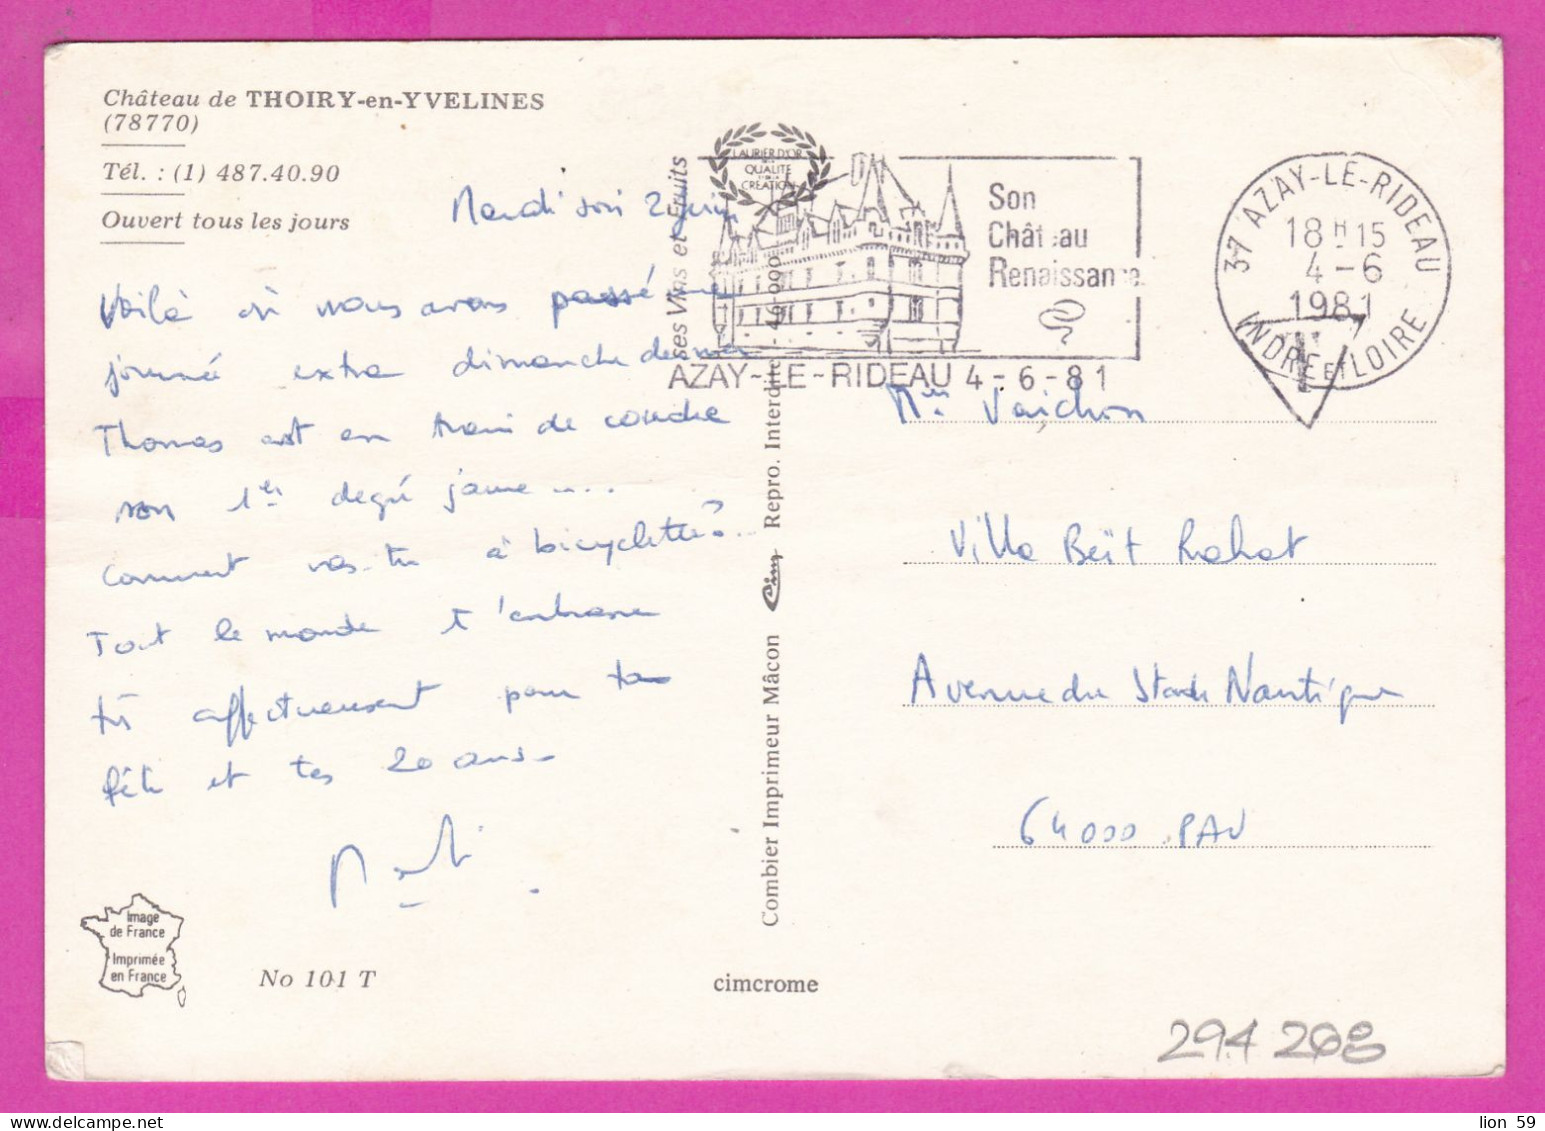 Château de THOIRY-en-YVELINES
(78770)
Tél. : (1) 487.40.90
Ouvert tous les jours
Mardi soir 2 juin
Voilà où nous avons passé une
journée extra dimanche dernier
Thomas est en train de coudre
son 1er degré jaune.....
Comment vas-tu à bicyclette?...
Tout le monde t'embrasse
très affectueusement pour ta
fête et tes 20 ans.
Image
de France
Imprimée
en France
No 101 T
cimcrome
Combier Imprimeur Mâcon Cim Repro. Interdite
LAURIER D'OR
QUALITÉ
CRÉATION
ses Vins et Fruits
Son
Château
Renaissance
AZAY-LE-RIDEAU 4-6-81
37 AZAY-LE-RIDEAU
18H15
4-6
1981
INDRE ET LOIRE
Villa Beït Rahat
Avenue du Stade Nautique
64000 PAU
294 208
lion 59